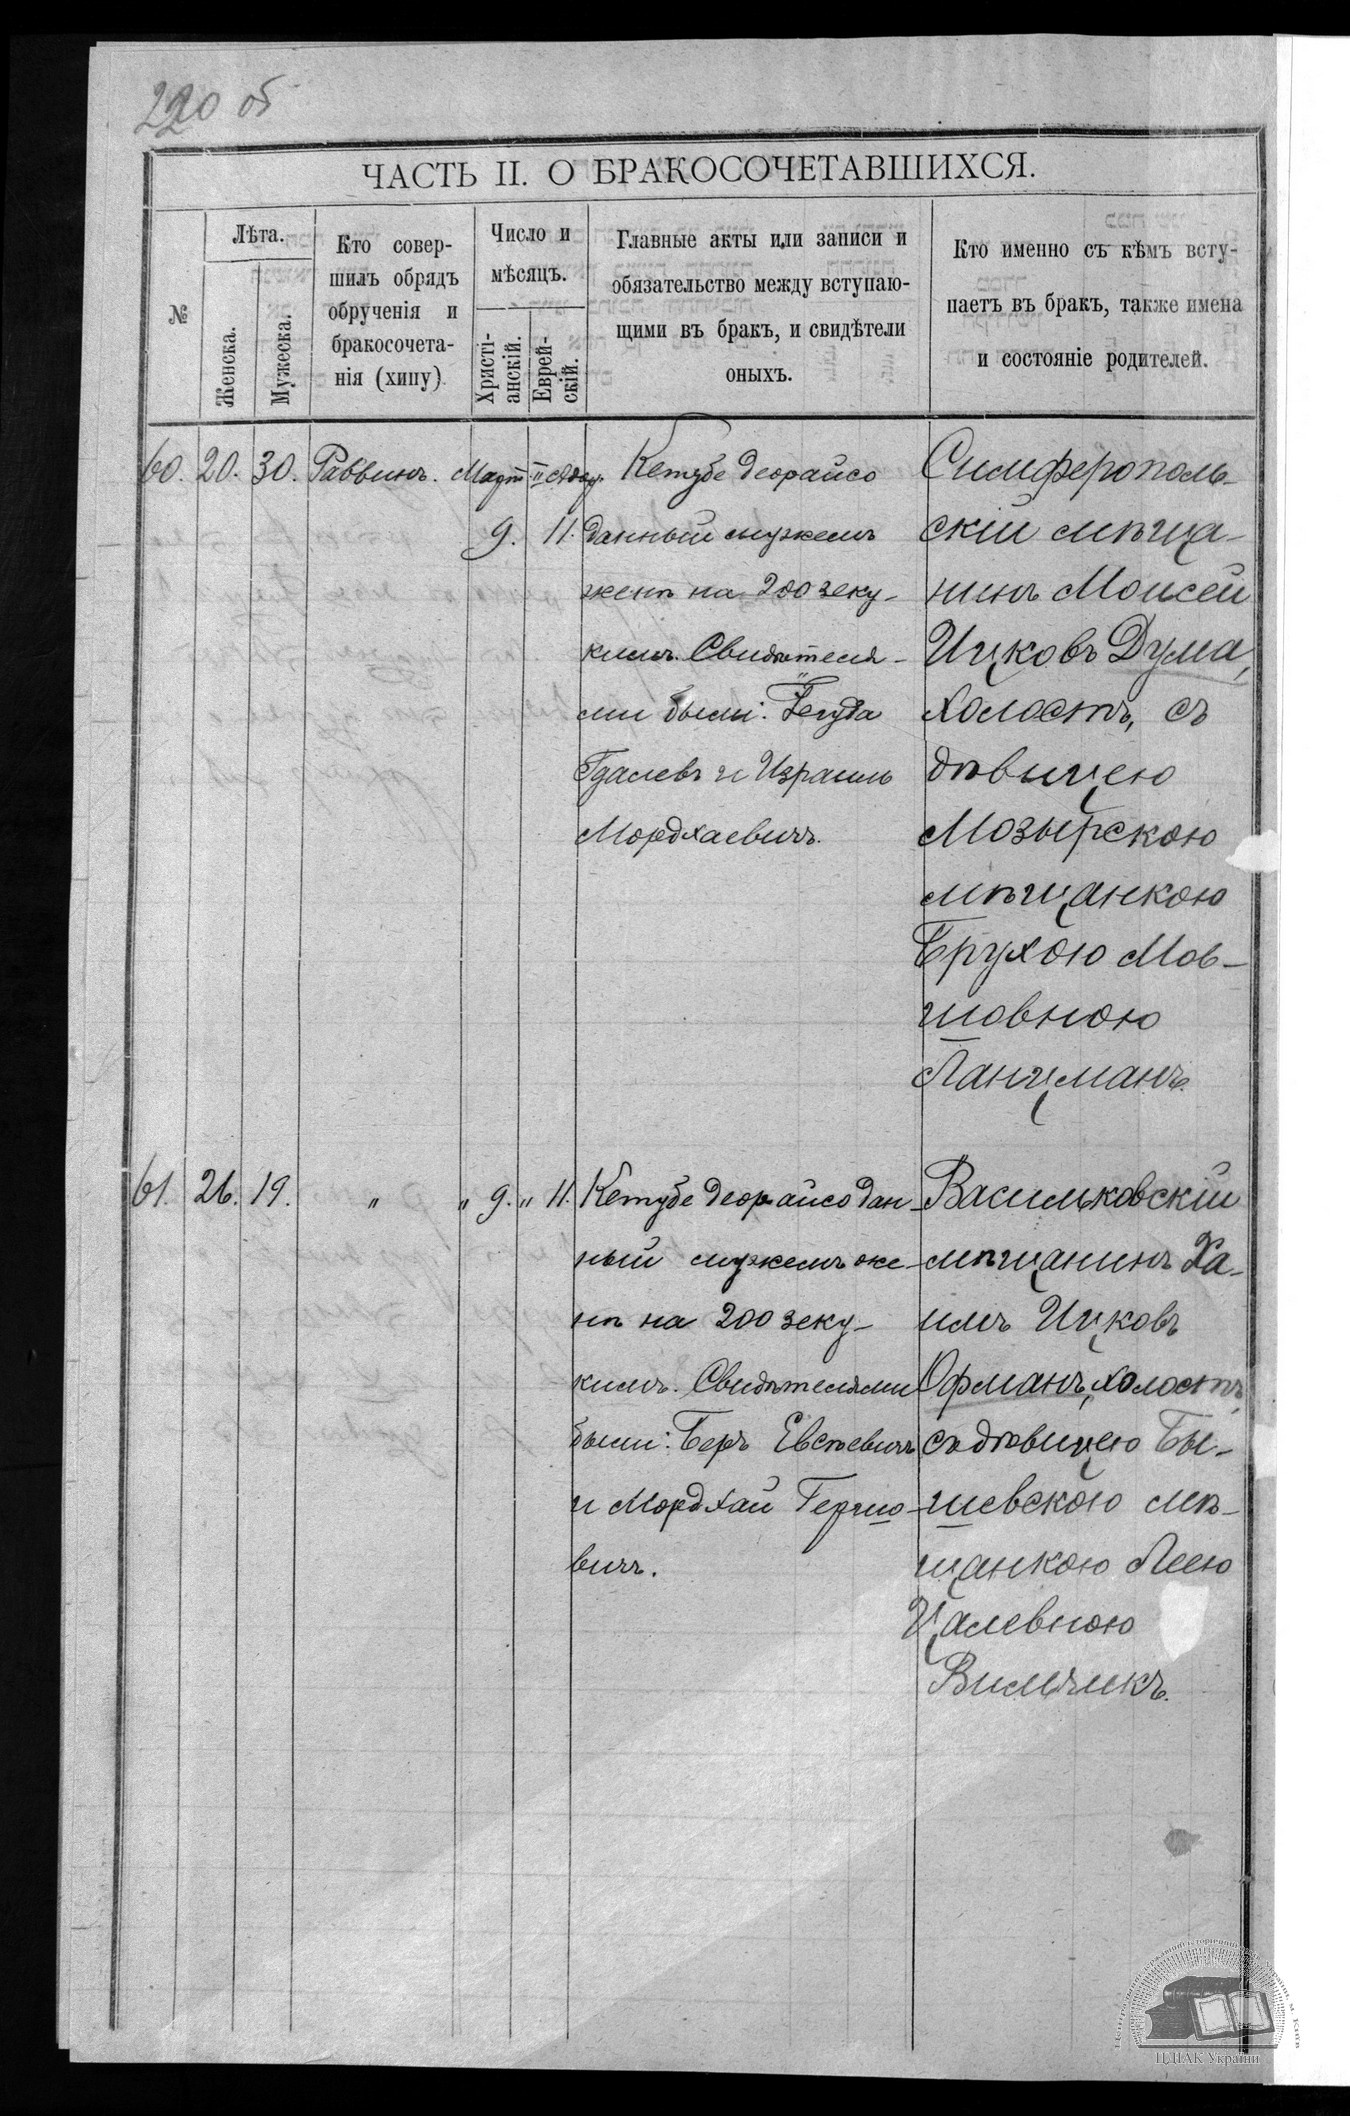 220 об
ЧАСТЬ II. О БРАКОСОЧЕТАВШИХСЯ.
№
Лѣта.
Женска.
Мужеска.
Кто совер-
шилъ обрядъ
обрученія и
бракосочета-
нія (хипу)
Число и
мѣсяцъ.
Христі-
анскій.
Еврей-
скій.
Главные акты или записи и
обязательство между вступаю-
щими въ бракъ, и свидѣтели
оныхъ.
Кто именно съ кѣмъ всту-
паетъ въ бракъ, также имена
и состояніе родителей.
60. 20. 30. Раввинъ. Март 9. II Адар. 11.
Кетубе деорайсо
данный мужемъ
женѣ на 200 зеку-
кимъ. Свидѣтеля-
ми были: Іегуда
Гдалевъ и Израиль
Мордхаевичъ.
Симферополь-
скій мѣща-
нинъ Моисей
Ицковъ Дума,
холостъ, съ
дѣвицею
Мозырскою
мѣщанкою
Брухою Мов-
шовною
Ланцманъ.
61. 26. 19. " " 9. " 11.
Кетубе деорайсо дан-
ный мужемъ же-
нѣ на 200 зеку-
кимъ. Свидѣтелями
были: Беръ Евсѣевичъ
и Мордхай Гершо-
вичъ.
Васильковскій
мѣщанинъ Ха-
имъ Ицковъ
Офманъ, холостъ,
съ дѣвицею Бы-
шевскою мѣ-
щанкою Леею
Цалевною
Вильчикъ.
ЦДІАК України